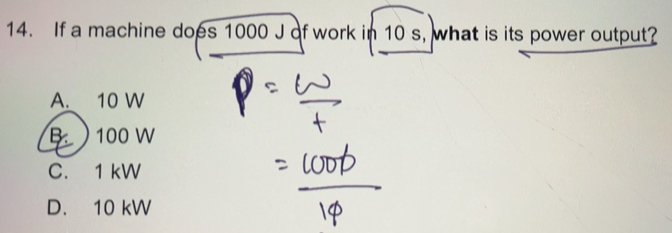 14. If a machine does 1000 J of work in 10 s, what is its power output?
A. 10 W
B. 100 W
C. 1 kW
D. 10 kW
P = W
t
= 1000
10